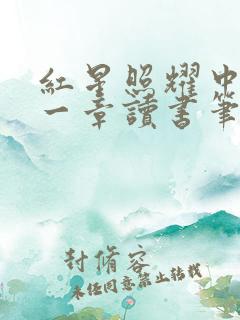 紅星照耀中
一章讀書筆
封脩容
未经同意禁止转载